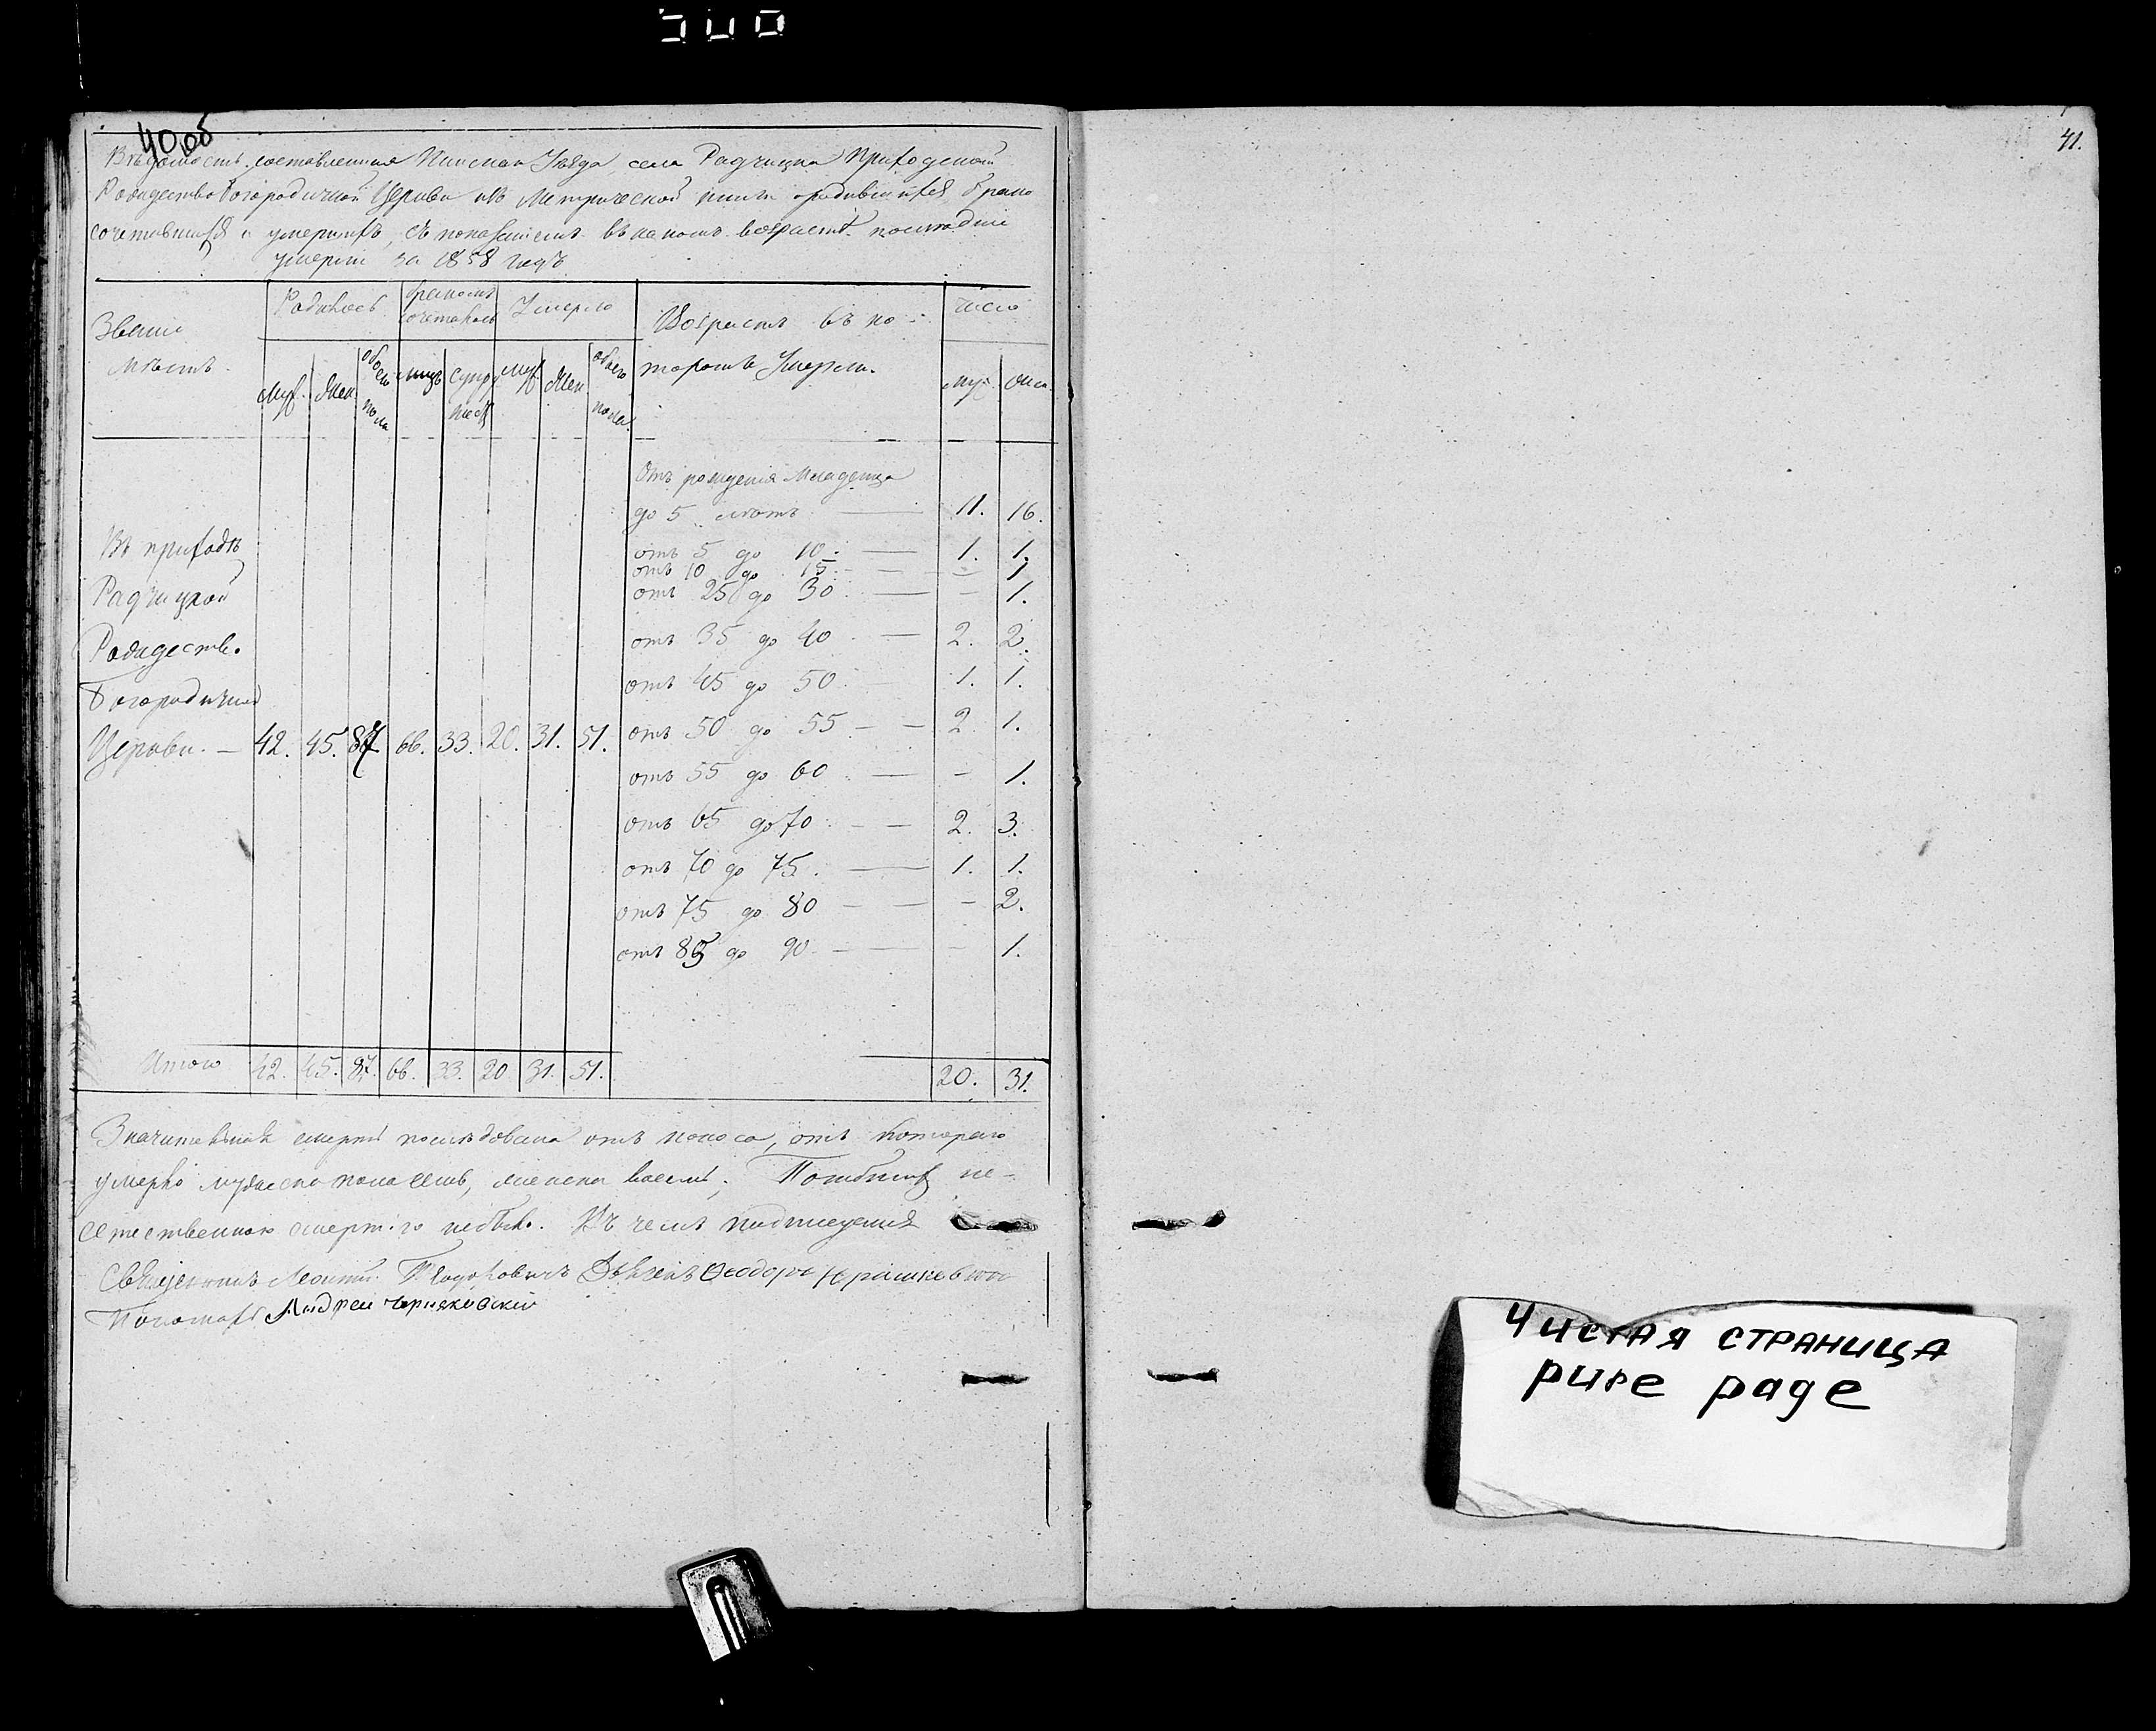 500
40об
Вѣдомость составленная Пинскаго Уѣзда села Радчицка Приходской
Рождество Богородичной Церкви изъ Метрической книги о родившихся брако
сочетавшихся и умершихъ, съ показаніемъ въ какомъ возрастѣ последніе
умерли за 1858 годъ
Званіе мѣстъ. Родилось бракомъ сочеталось Умерло Возрастъ въ ко- торомъ Умерли. число
Муж. Жен. обоего пола лицъ супру жест Муж. Жен. обоего пола. муж. жен.
Отъ рожденія Младенца
до 5 лѣтъ 11. 16.
Въ приходѣ отъ 5 до 10 1. 1.
отъ 10 до 15 — 1
Радчицкой отъ 25 до 30 — 1.
Рождество отъ 35 до 40 2. 2.
Богородичной отъ 45 до 50 1. 1.
Церкви. — 42. 45. 87 66. 33. 20. 31. 51. отъ 50 до 55 — — 2 1.
отъ 55 до 60 — — 1.
отъ 65 до 70 — — 2. 3.
отъ 70 до 75. — 1. 1.
отъ 75 до 80 — — — 2.
отъ 85 до 90 — — 1.
Итого 42. 45. 87. 66. 33. 20 31. 51. 20. 31.
Значительная смерть последовала отъ поноса, отъ котораго
умерло мужеска пола семь, женска восемь; Погибшихъ не-
естественною смертію небыло. Въ чемъ подписуемся
Священникъ Леонтій Дьячекъ Ѳеодоръ
Пономарь Андрей Черняковскій
41.
Чистая страница
pure page